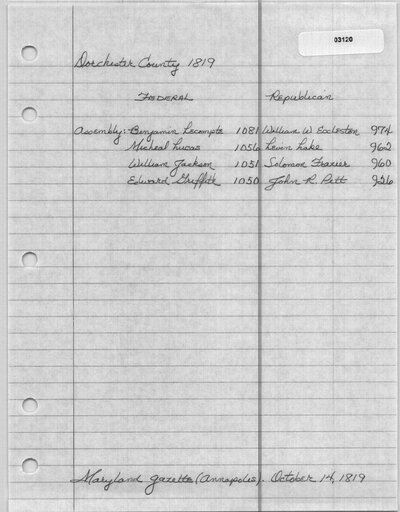 03120
Dorchester County 1819
FEDERAL Republican
Assembly: Benjamin Lecompte 1081 William W Eccleston 974
Micheal Lucas 1056 Levin Lake 962
William Jackson 1051 Solomon Frazier 960
Edward Griffith 1050 John R. Pitt 926
Maryland Gazette (Annapolis). October 14, 1819